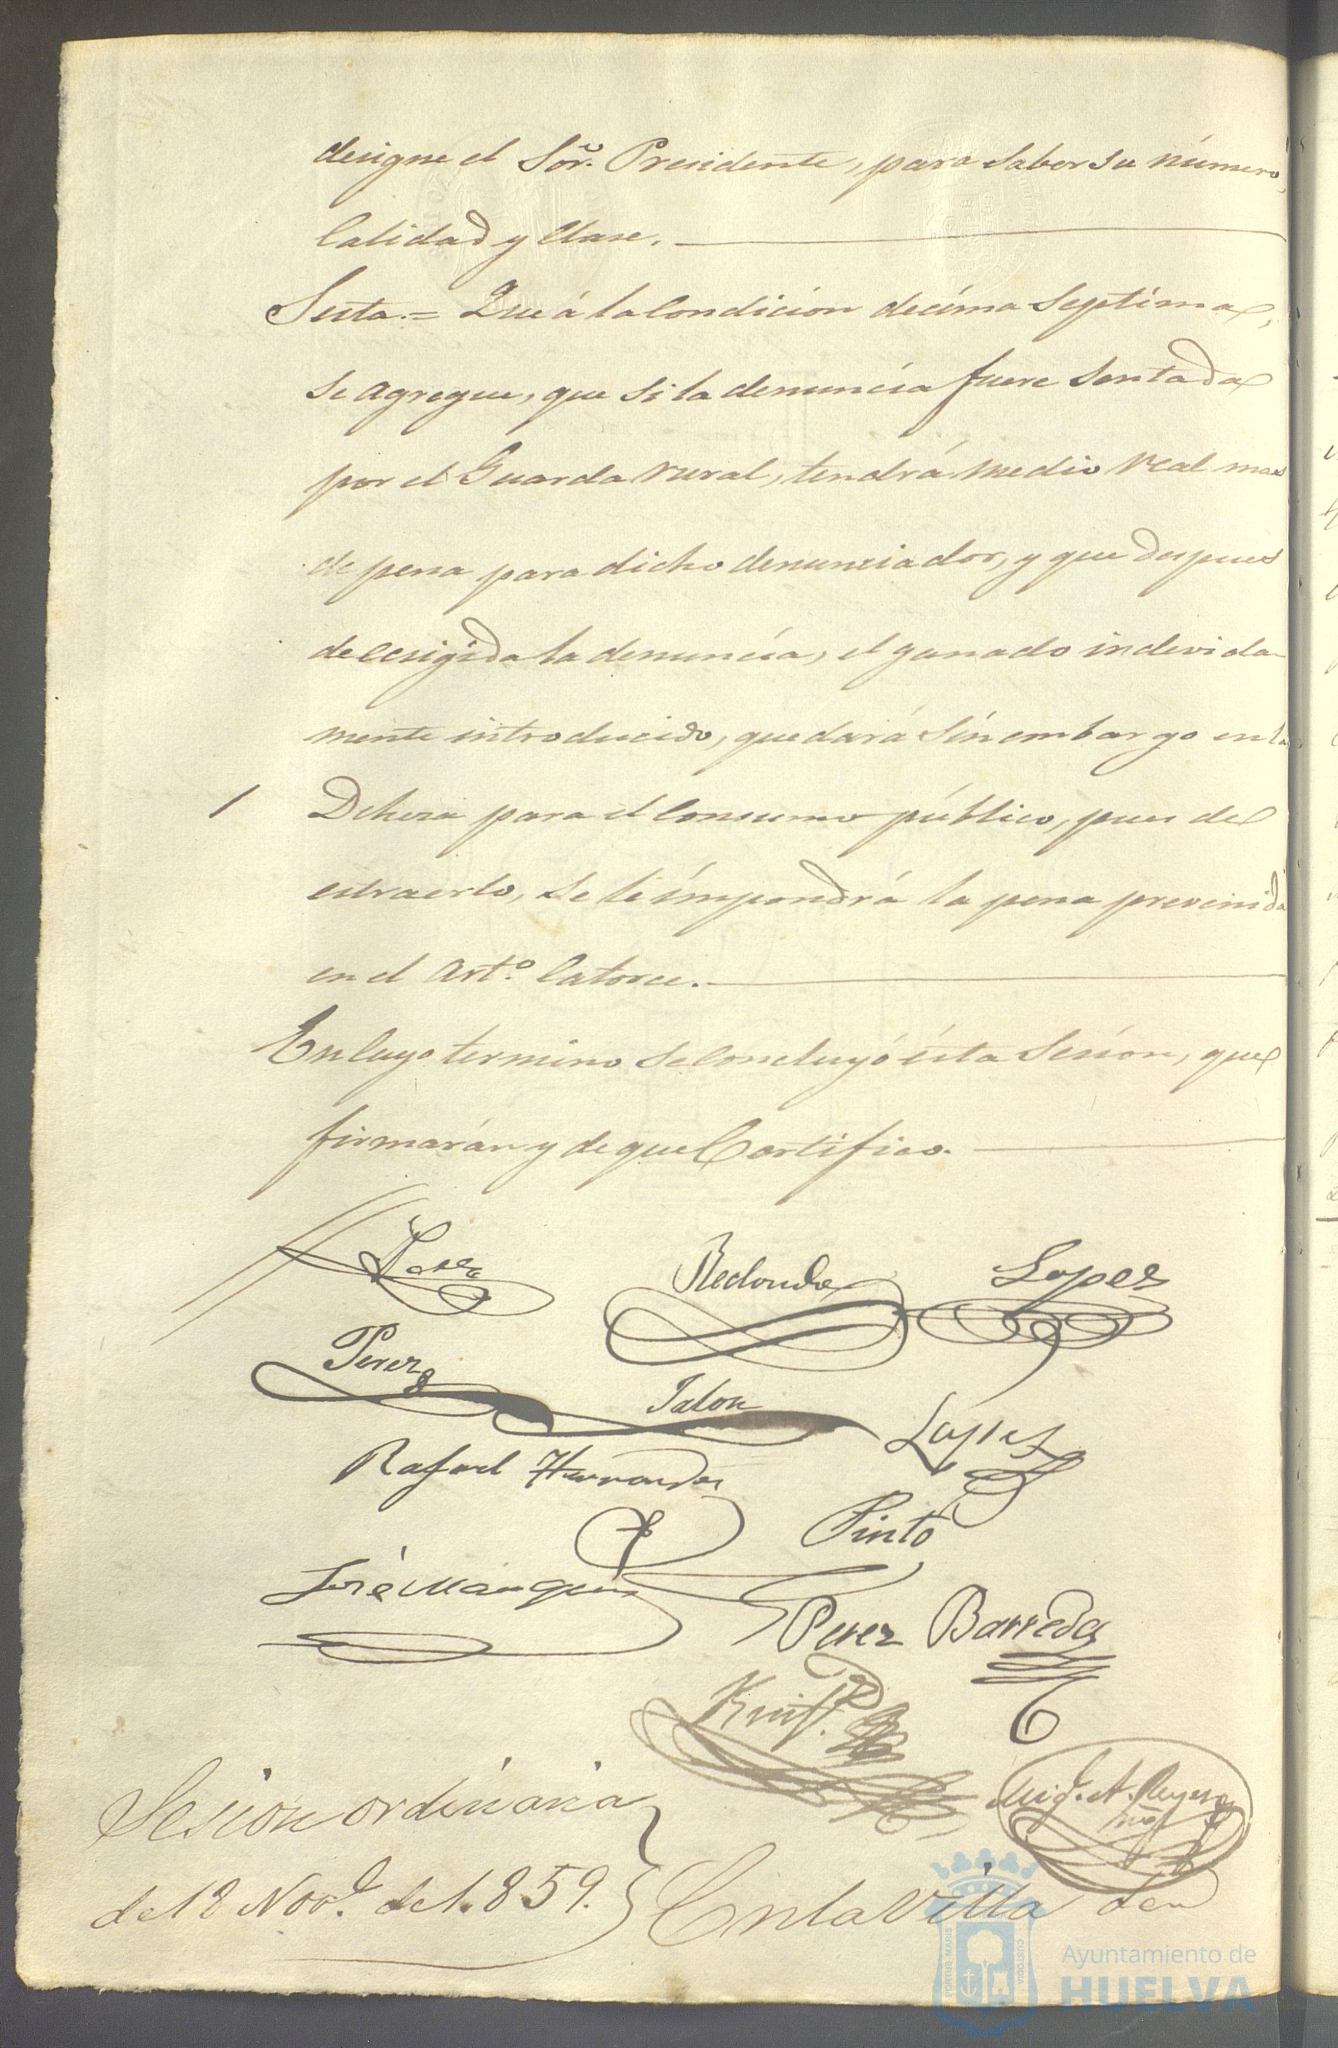 designe el Sor. Presidente, para saber su número,
Calidad y Clase.
Sesta.= Que á la Condición decíma septíma,
se agregue, que si la denuncía fuere sentada
por el Guarda rural, tendrá medio real mas
de pena para dicho denunciador, y que despues
de ecsigida la denuncía, el ganado indevida-
mente introducido, quedará sín embargo en la
Dehesa para el Consumo público, pues de
estraerlo, se le ímpondrá la pena prevenida
en el Artº. Catorce.
En Cuyo termino se Concluyó ésta Sesíon, que
firmarán y de que Certifico.
Redondo Lopez
Perez Jalon Lopez
Rafael Hernandez
Pinto
José Marquez
Perez Barreda
Mig.l A. Reyes
Sesion ordinaria
de 12 Nove. de 1.859. En la Villa de
Ayuntamiento de
HUELVA